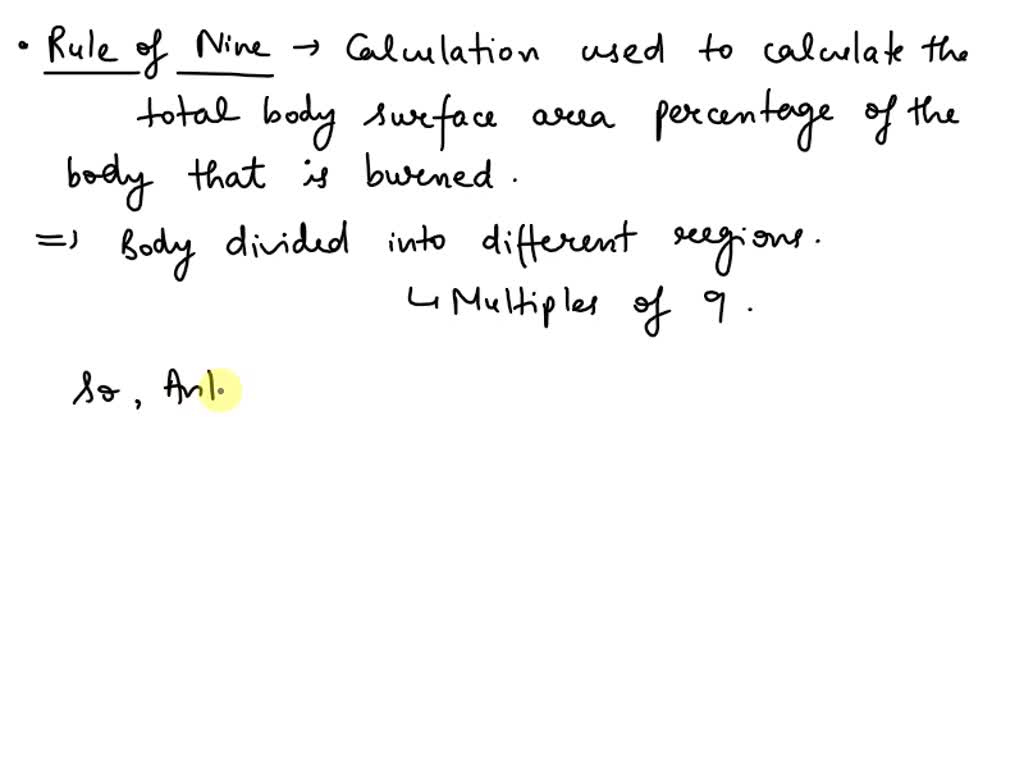 • Rule of Nine → Calculation used to calculate the
total body surface area percentage of the
body that is burned.
=> Body divided into different regions.
↳ Multiples of 9.
So,